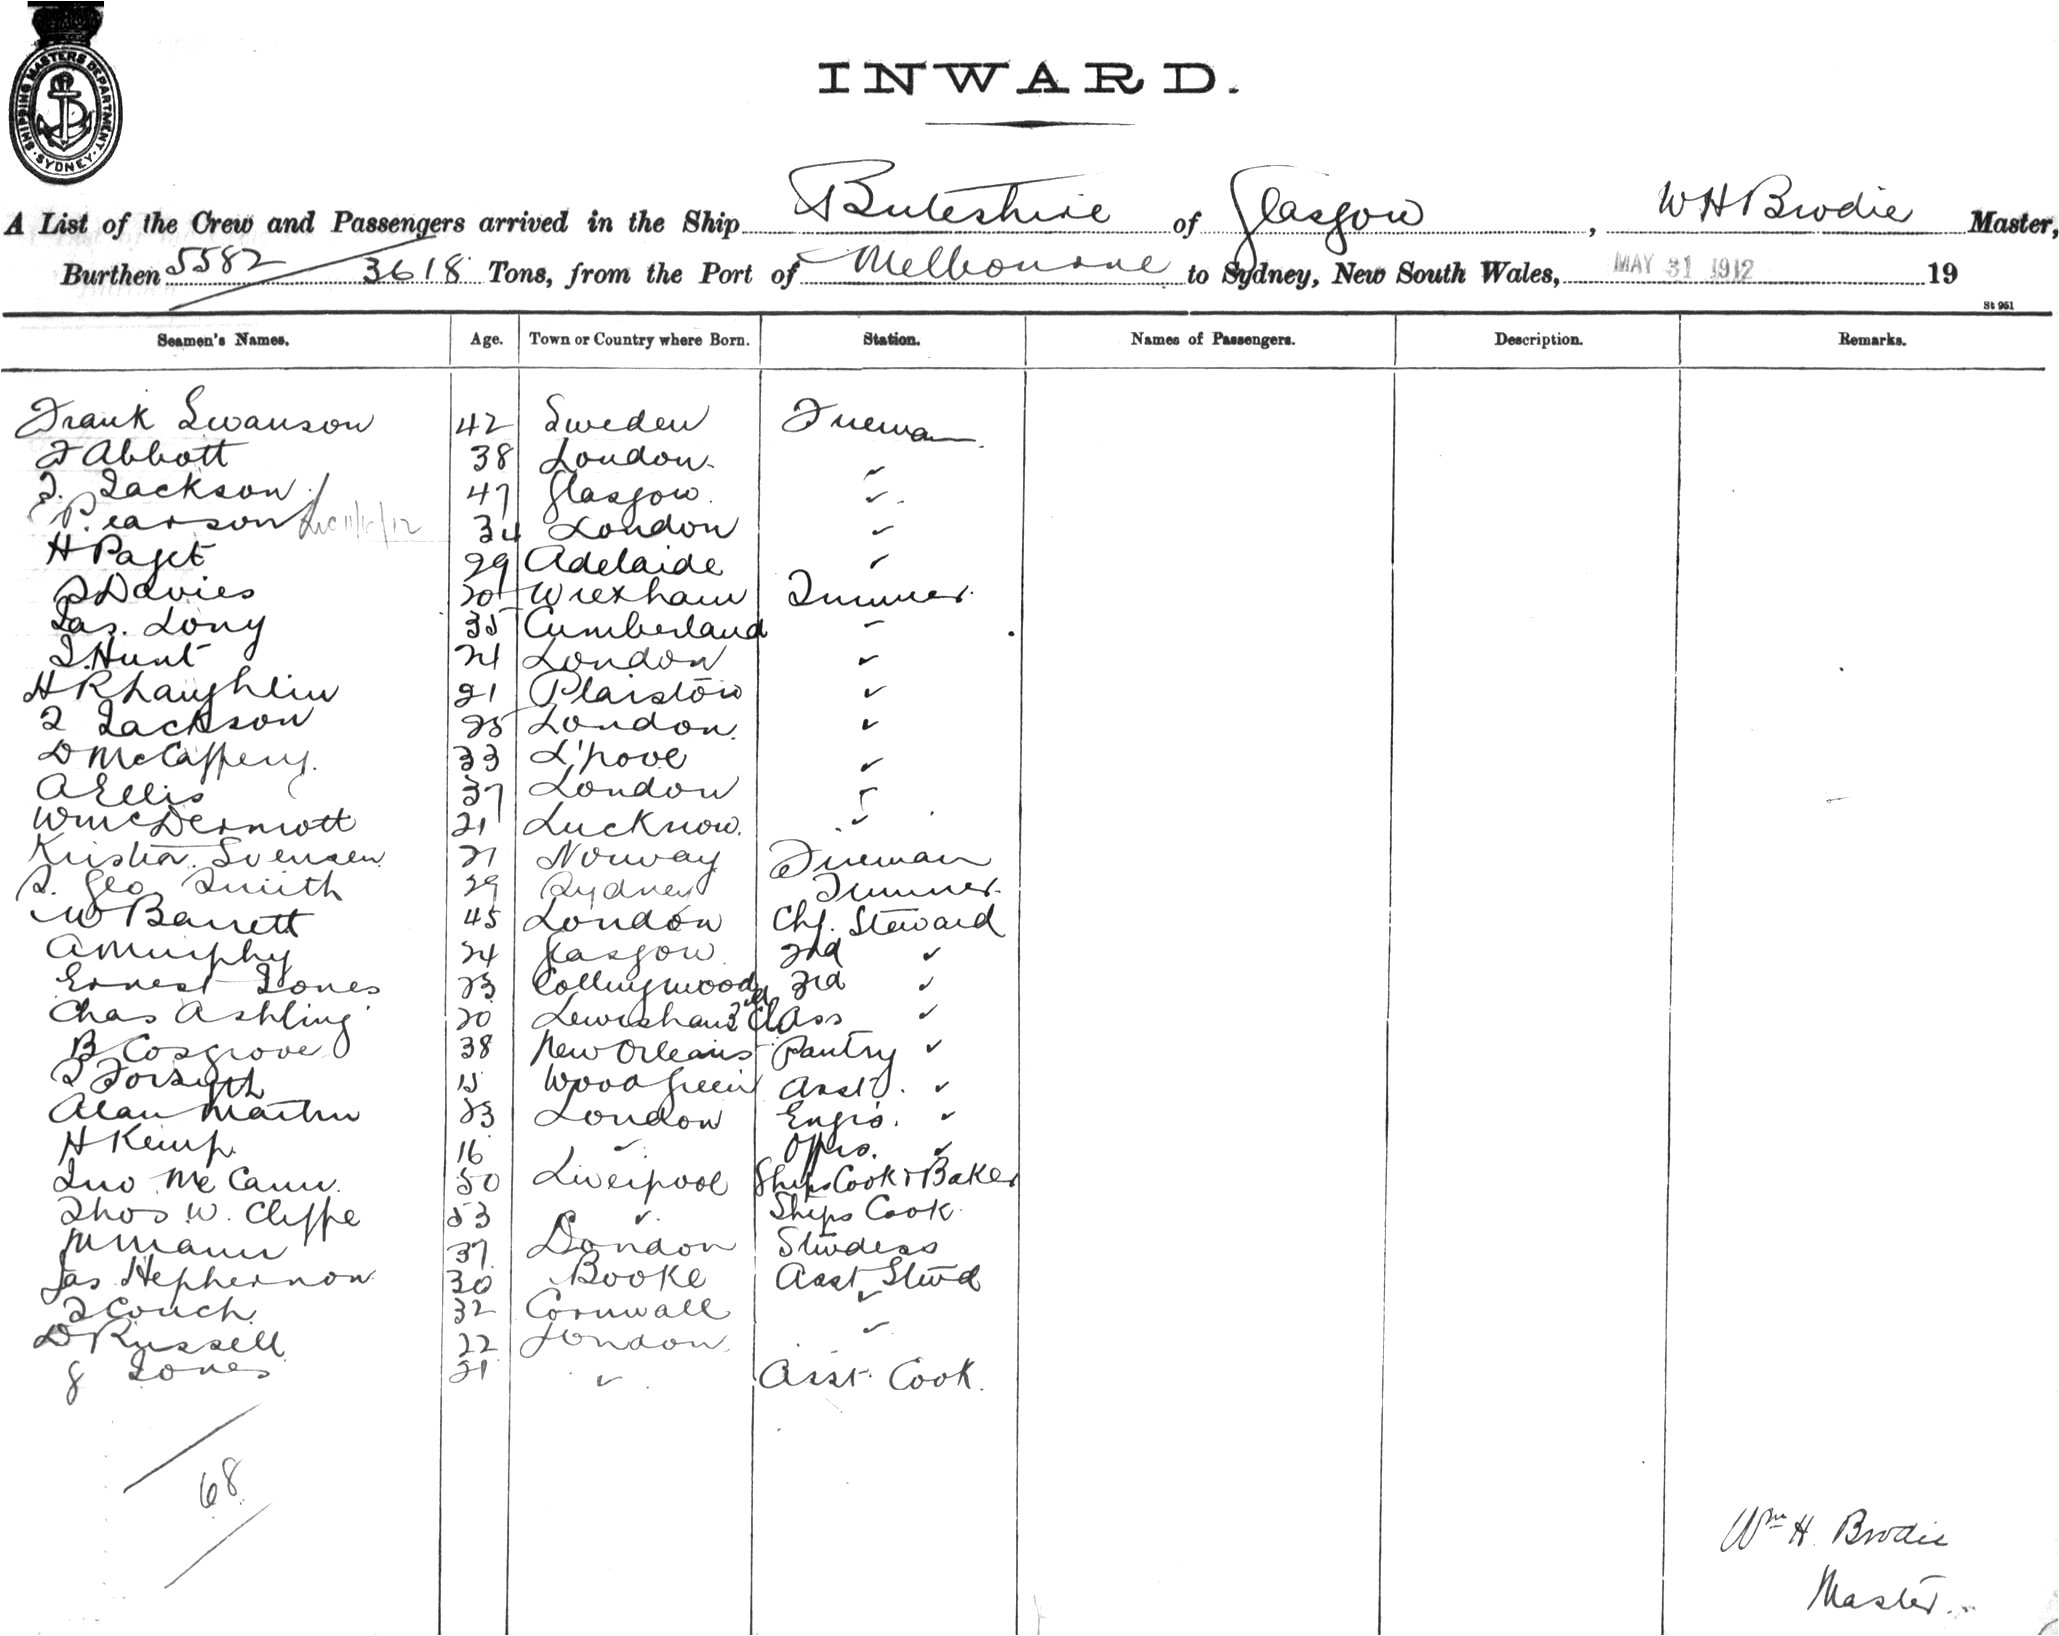 SHIPPING MASTERS DEPARTMENT · SYDNEY ·
INWARD.
A List of the Crew and Passengers arrived in the Ship Buteshire of Glasgow, W H Brodie Master,
Burthen 5582 / 3618 Tons, from the Port of Melbourne to Sydney, New South Wales, MAY 31 1912 19
St 951
Seamen's Names. Age. Town or Country where Born. Station. Names of Passengers. Description. Remarks.
Frank Swanson 42 Sweden Fireman
F Abbott 38 London ✓
J. Jackson 47 Glasgow ✓
Pearson 34 London ✓
H Paget 29 Adelaide ✓
Davies 20 Wrexham Trimmer
Jas. Long 35 Cumberland ✓
J. Hunt 24 London ✓
H R Laughlin 21 Plaistow ✓
J Jackson 25 London ✓
D McCaffery 33 L'pool ✓
A Ellis 37 London ✓
W McDermott 21 Lucknow ✓
Kristian Svensen 21 Norway Fireman
Geo Smith 29 Sydney Trimmer
W Barrett 45 London Chf. Steward
A Murphy 24 Glasgow 2nd ✓
Ernest Jones 23 Collingwood 3rd ✓
Chas Ashling 20 Lewisham 3rd Class ✓
B Cosgrove 38 New Orleans Pantry ✓
J Forsyth 15 Wood Green Asst. ✓
Alan Martin 23 London Engrs. ✓
H Kemp 16 ✓ Offrs. ✓
Jno McCann 50 Liverpool Ships Cook & Baker
Thos W. Cliffe 53 ✓ Ships Cook
M Mann 37 London Stwdess
Jas Hephernon 30 Booke Asst Stwd
J Couch 32 Cornwall ✓
D Russell 22 London ✓
J Jones 21 ✓ Asst Cook.
68
Wm H. Brodie
Master.